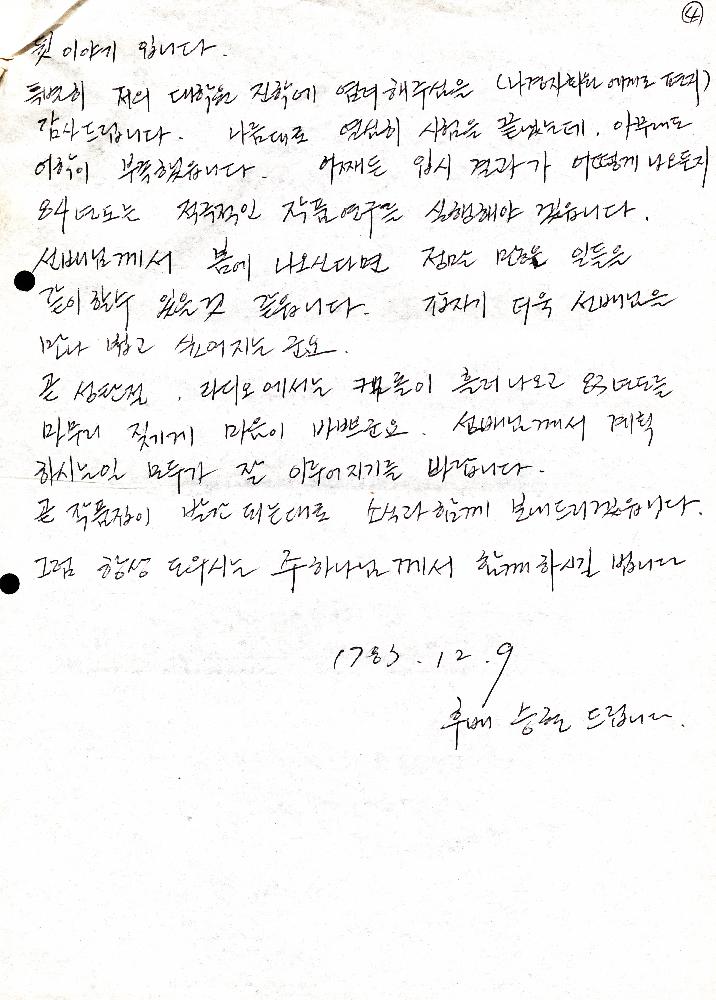 ④
뒷 이야기 입니다.
특별히 저의 대학원 진학에 염려해주심을 (나경자회원에게로 편지)
감사드립니다. 나름대로 열심히 시험을 끝냈는데, 아무래도
어학이 부족했읍니다. 어째든 입시 결과가 어떻게 나오든지
84년도는 적극적인 작품연구를 실행해야 겠읍니다.
선배님께서 봄에 나오신다면 정말 많은 일들을
같이 할수 있을것 같읍니다. 갑자기 더욱 선배님을
만나 뵙고 싶어지는군요.
곧 성탄절, 라디오에서는 캐롤이 흘러나오고 83년도를
마무리 짖기게 마음이 바쁘군요. 선배님께서 계획
하시는일 모두가 잘 이루어지기를 바랍니다.
곧 작품집이 발간 되는대로 소식과 함께 보내드리겠읍니다.
그럼 항상 도와시는 주 하나님께서 함께하시길 빕니다
1983.12.9
후배 승현 드립니다.